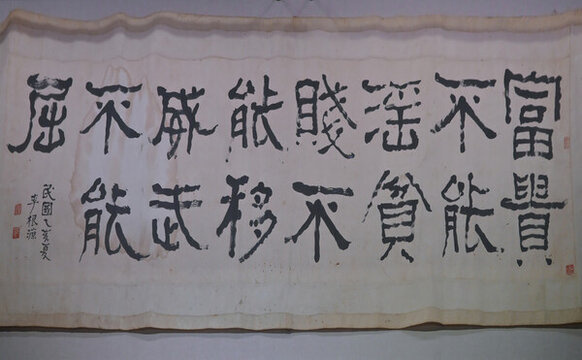 富貴
不能
淫貧
賤不
能移
威武
不能
屈
民國乙亥夏
李根源